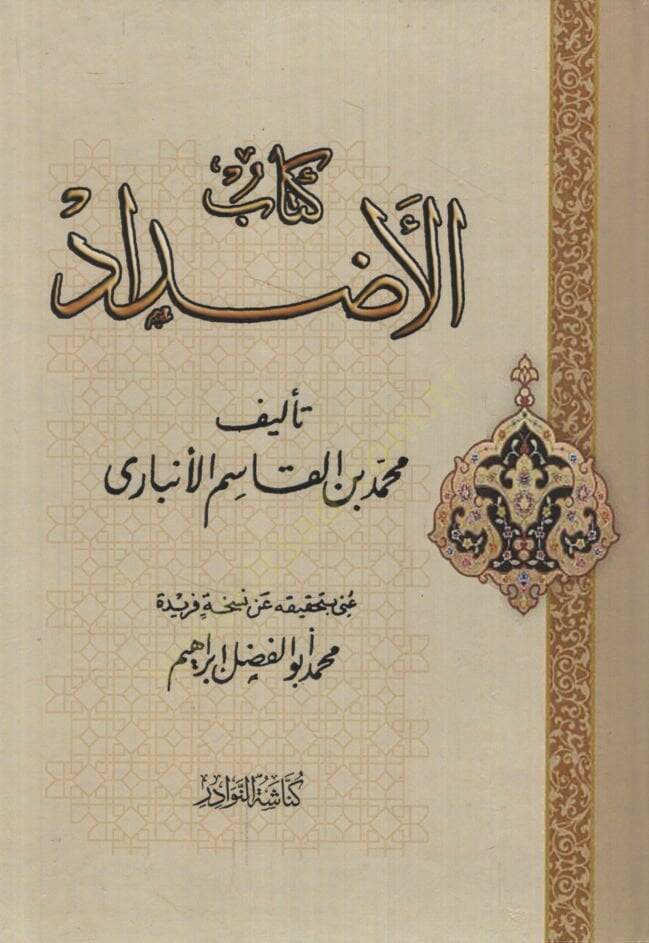 كتابُ
الأَضداد
تأليف
محمّد بن القاسِم الأنبارى
عُنى بتحقيقه عَن نسخةٍ فريْدة
محمد أبو الفضل إبراهيم
كُنَّاشَةُ النَّوَادِرِ